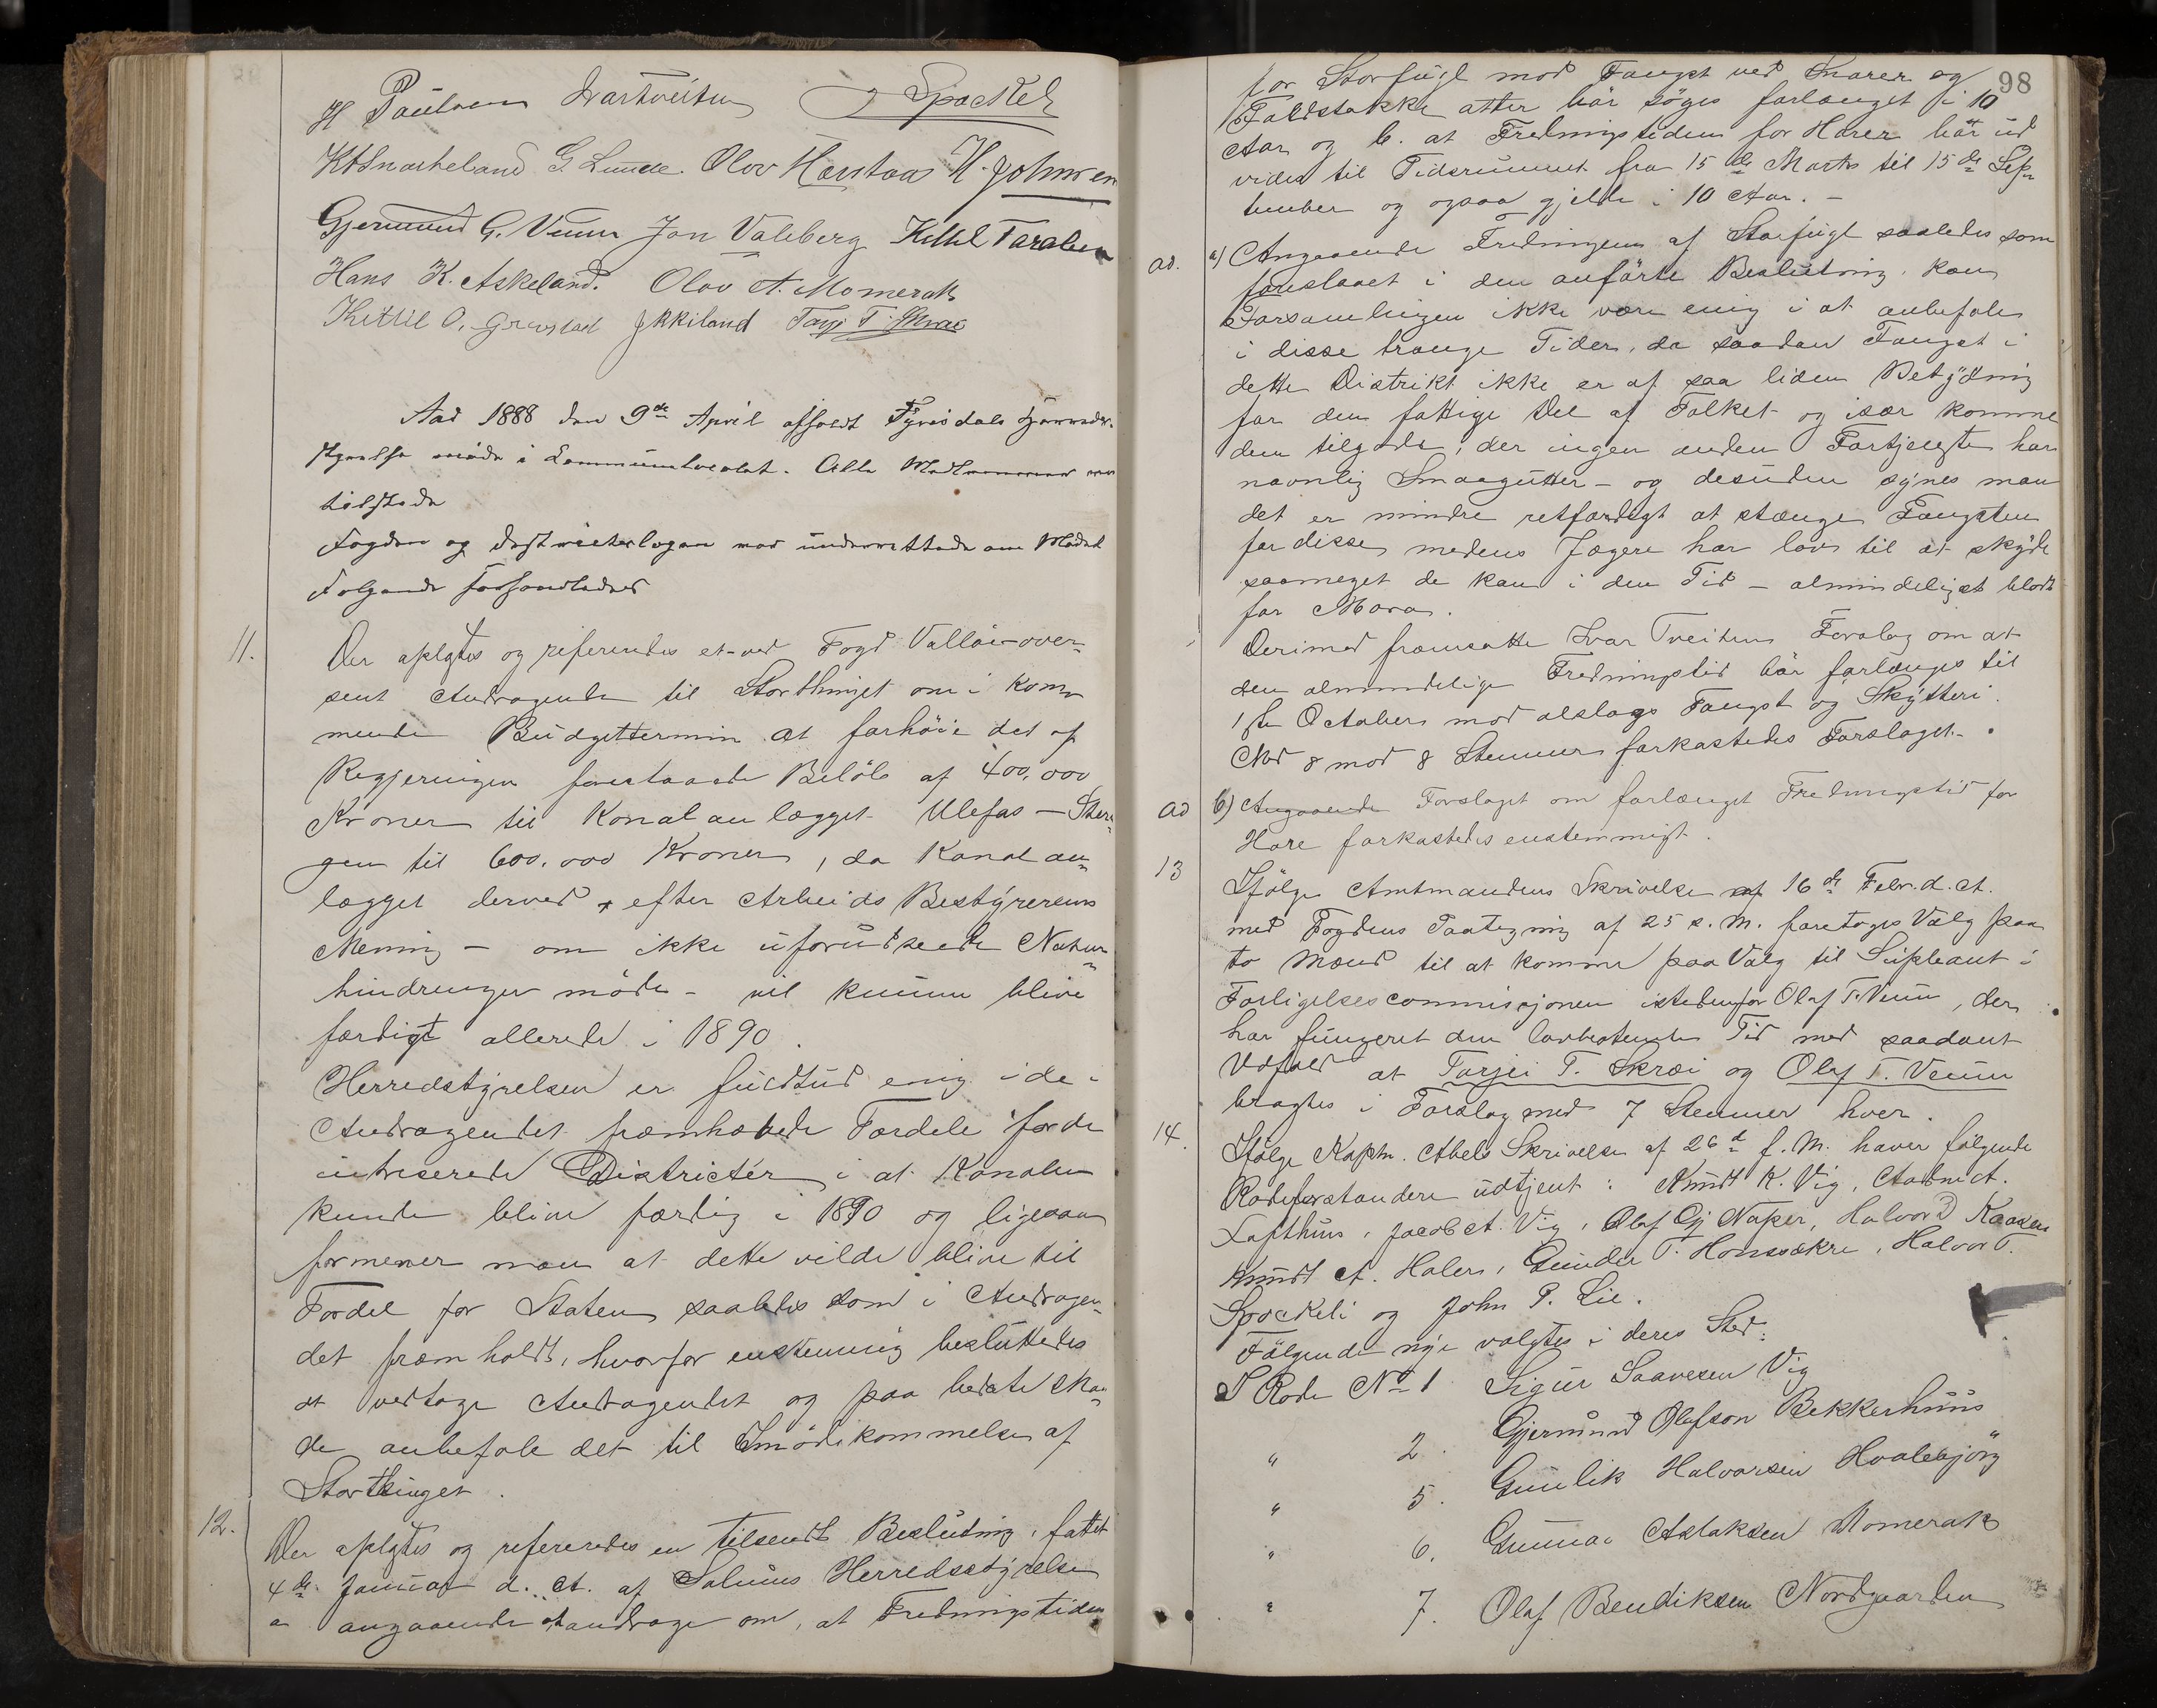 H Paulsen Ivartveiten Spockeli
KASnarteland G. Lunde. Olov Haustaas H. Johnsen
Gjermund G. Veum Jon Valeberg Kittel Taraldsen
Hans K. Askeland. Olav A. Momerak
Kittil O. Grevstad Jkkiland Tarjei T. Skræe
Aar 1888 den 9de April afholdt Fyrisdals Herreds-
styrelse møde i Communelocalet. Alle Medlemmer var
tilstede
Fogden og Distrieterlægen var underrettede om Mødet
Følgende forhandledes
11. Der oplæstes og refereredes et ved Fogd Valløi over-
sent Andragende til Storthinget om i Kom-
mende Budgettermin at forhöie det af
Regjeringen foreslaaede Belöb af 400.000
Kroner til Kanalanlægget Ulefos – Stren-
gen til 600.000 Kroner, da Kanalan-
lægget derved – efter Arbeids Bestyrerens
Mening – om ikke uforudseede Natur-
hindringer möde – vil kunne blive
færdigt allerede i 1890.
Herredstyrelsen er fuldtud enig i de i
Andragendet fræmhævede Fordele for de
intreserede Districter i at Kanalen
kunde blive færdig i 1890 og ligesaa
formener man at dette vilde blive til
Fordel for Staten saaledes som i Andragen-
det fræmholdt, hvorfor enstemmig besluttedes
at vedtage Andragendet og paa bedste Maa-
de anbefale det til Imödekommelse af
Storthinget.
12. Der oplæstes og refereredes en tilsendt Beslutning, fattet
4de Januar d. A. af Solums Herredsstyrelse
a angaaende at andrage om, at Fredningstiden
98
for Storfugl mod Fangst ved Snarer og
Faldstokke atter bör söges forlænget i 10
Aar og b. at Fredningstiden for Harer bör ud
vides til Tidsrummet fra 15de Marts til 15de Sep-
tember og ogsaa gjelde i 10 Aar. –
ad. a) Angaaende Fredningen af Storfugl saaledes som
foreslaaet i den anförte Beslutning, kan
Forsamlingen ikke være enig i at anbefale
i disse trange Tider, da saadan Fangst i
dette Distrikt ikke er af saa liden Betydning
for den fattige Del af Folket og især komme
dem tilgode, der ingen anden Fortjeneste har
navnlig Smaagutter – og desuden synes man
det er mindre retfærdigt at stænge Fangsten
for disse medens Jægere har lov til at skyde
saameget de kan i den Tid – almindeligst blot
for Moro.
Derimod fræmsatte Ivar Tveiten Forslag om at
den almindelige Fredningstid bör forlænges til
1ste October mod alslags Fangst og Skytteri.
Med 8 mod 8 Stemmer forkastedes Forslaget.
ad b) Angaaende Forslaget om forlænget Fredningstid for
Hare forkastedes enstemmigt.
13 Ifölge Amtmandens Skrivelse af 16de Febr. d. A.
med Fogdens Paategning af 25 s. M. foretoges Valg paa
to Mænd til at komme paa Valg til Supleant i
Forligelsescommissjonen istedenfor Olaf T. Veum, der
har fungeret den lovbestemte Tid med saadant
Udfald at Tarjei T. Skræi og Olaf T. Veum
bragtes i Forslag med 7 Stemmer hver.
14. Ifölge Kaptn. Abels Skrivelse af 26de f. M. haver fölgende
Rodeforstandere udtjent: Knudt K. Vig, Aadne A.
Lofthuus, Jacob A. Vig, Olaf Gj Naper, Halvor D Kaasen
Knudt A. Holen, Gunder T. Honsaakre, Halvor T.
Spockeli og John P. Lie.
Fölgende nye valgtes i deres Sted:
I Rode No 1 Sigur Saavesen Vig
" 2. Gjermund Olafson Bekkerhuus
" 5. Gunlik Halvorsen Hvalebjörg
" 6. Gunnar Aslaksen Momerak
" 7. Olaf Bendiksen Nordgaarden